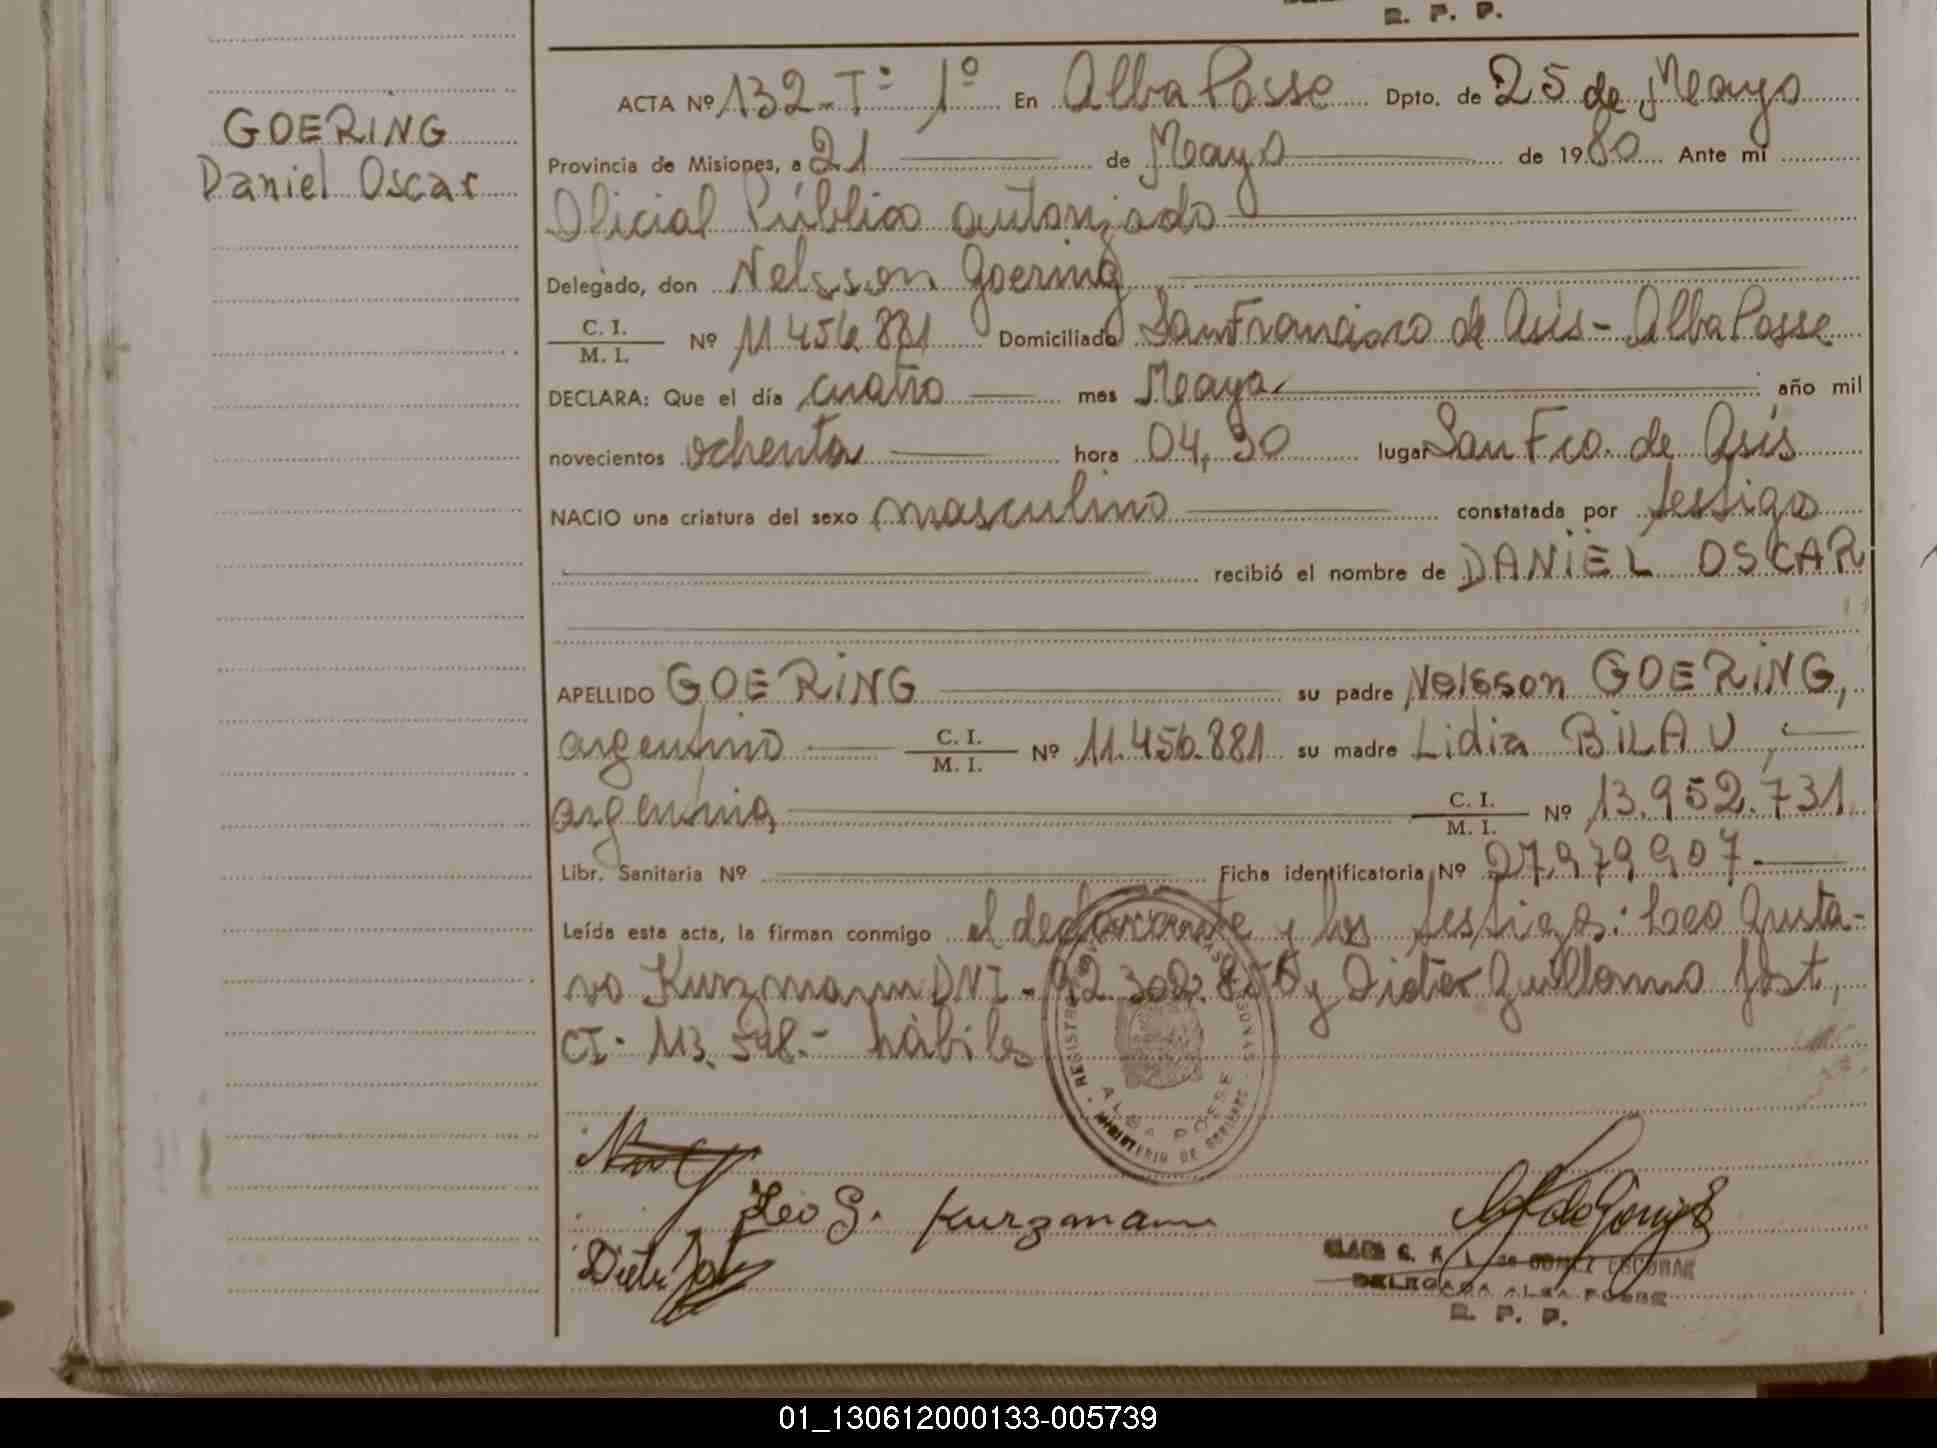 R. P. P.
ACTA Nº 132 - Tº 1º En Alba Posse Dpto. de 25 de Mayo
GOERING
Daniel Oscar
Provincia de Misiones, a 21 de Mayo de 1980 Ante mi
Oficial Público autorizado
Delegado, don Nelsson Goering
C. I.
M. I. Nº 11.456.881 Domiciliado San Francisco de Asis - Alba Posse
DECLARA: Que el día cuatro mes Mayo año mil
novecientos ochenta hora 04,30 lugar San Fco. de Asís
NACIO una criatura del sexo masculino constatada por testigo
recibió el nombre de DANIEL OSCAR
APELLIDO GOERING su padre Nelsson GOERING,
argentino C. I. M. I. Nº 11.456.881 su madre Lidia BILAU,
argentina, C. I. M. I. Nº 13.952.731
Libr. Sanitaria Nº Ficha identificatoria Nº 27.979.907.-
Leída esta acta, la firman conmigo el declarante y los testigos: Leo Gusta-
vo Kurzmann DNI - 92.302. y Dieter Guillermo Jost,
CI. 113.598.- hábiles
ALBA POSSE
Leo G. Kurzmann
Dieter Jost
GOMEZ ESCOBAR
DELEGADA ALBA POSSE
R. P. P.
01_130612000133-005739